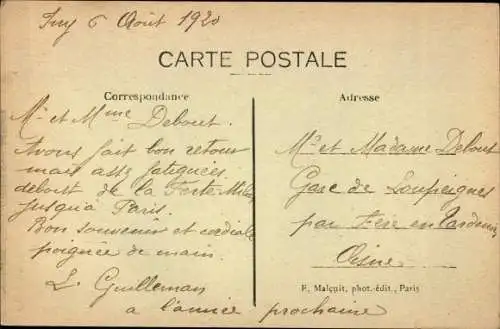 6 Août 1920
CARTE POSTALE
Correspondance
Adresse
Mr et Mme Debout.
Avons fait bon retour
mais assé fatiguées
debout de la Ferté Milon
jusqu'à Paris.
Bon souvenir et cordiale
poignée de main.
L. Guilleman
a l'année prochaine
Mr et Madame Debout
Gare de Loupeigne
par Fère en Tardenois
Aisne
F. Malcuit, phot.-édit., Paris